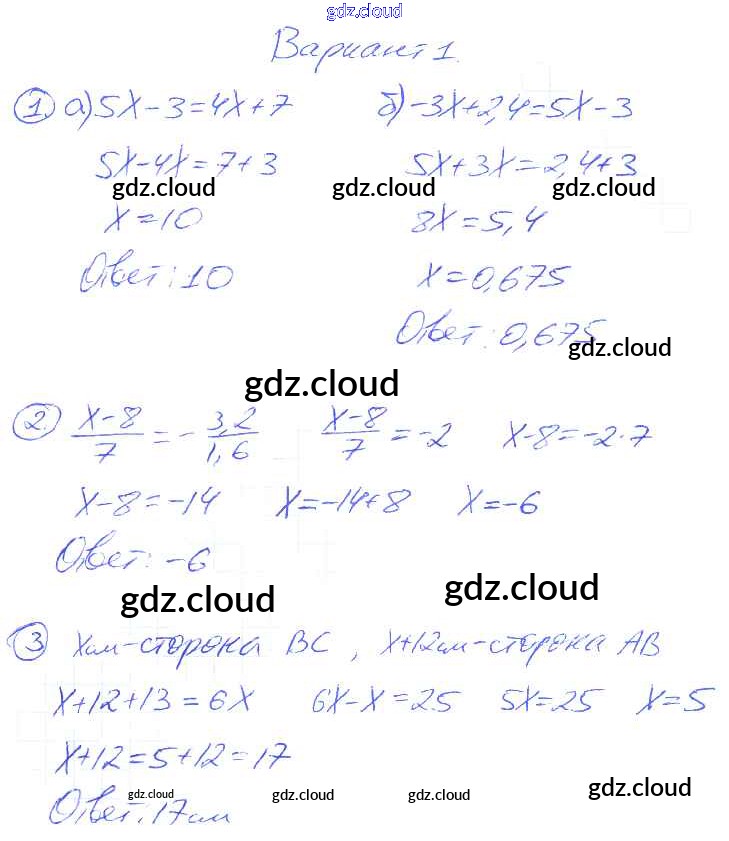 gdz.cloud
Вариант 1.
1 а) 5x-3=4x+7 б) -3x+2,4=5x-3
5x-4x=7+3 5x+3x=2,4+3
gdz.cloud gdz.cloud gdz.cloud
x=10 8x=5,4
Ответ: 10 x=0,675
Ответ: 0,675
gdz.cloud
gdz.cloud
2. (x-8)/7 = -3,2/1,6 (x-8)/7 = -2 x-8=-2·7
x-8=-14 x=-14+8 x=-6
Ответ: -6
gdz.cloud gdz.cloud
3 xсм-сторона BC, x+12см-сторона AB
x+12+13=6x 6x-x=25 5x=25 x=5
x+12=5+12=17
gdz.cloud gdz.cloud gdz.cloud gdz.cloud
Ответ: 17см